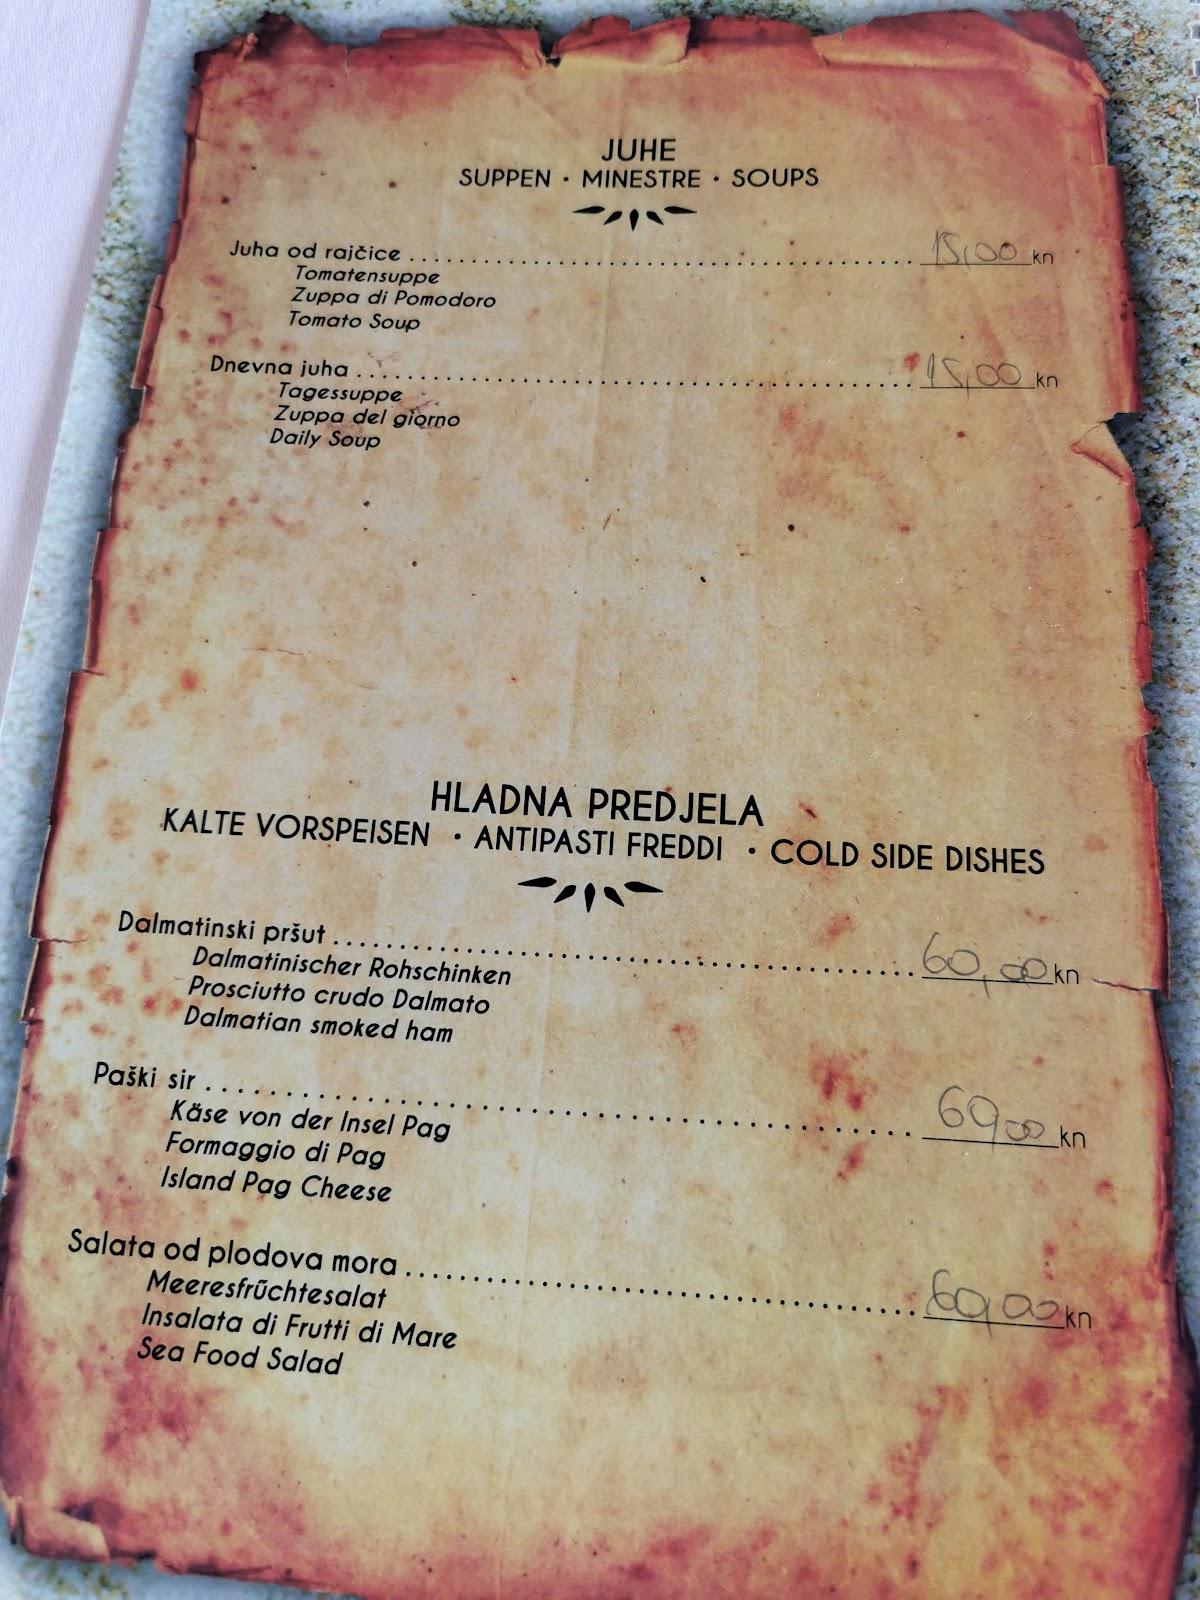 JUHE
SUPPEN · MINESTRE · SOUPS
Juha od rajčice ........................................ 15,00 kn
Tomatensuppe
Zuppa di Pomodoro
Tomato Soup
Dnevna juha ........................................ 15,00 kn
Tagessuppe
Zuppa del giorno
Daily Soup
HLADNA PREDJELA
KALTE VORSPEISEN · ANTIPASTI FREDDI · COLD SIDE DISHES
Dalmatinski pršut ........................................ 60,00 kn
Dalmatinischer Rohschinken
Prosciutto crudo Dalmato
Dalmatian smoked ham
Paški sir ........................................ 60,00 kn
Käse von der Insel Pag
Formaggio di Pag
Island Pag Cheese
Salata od plodova mora ........................................ 60,00 kn
Meeresfrūchtesalat
Insalata di Frutti di Mare
Sea Food Salad